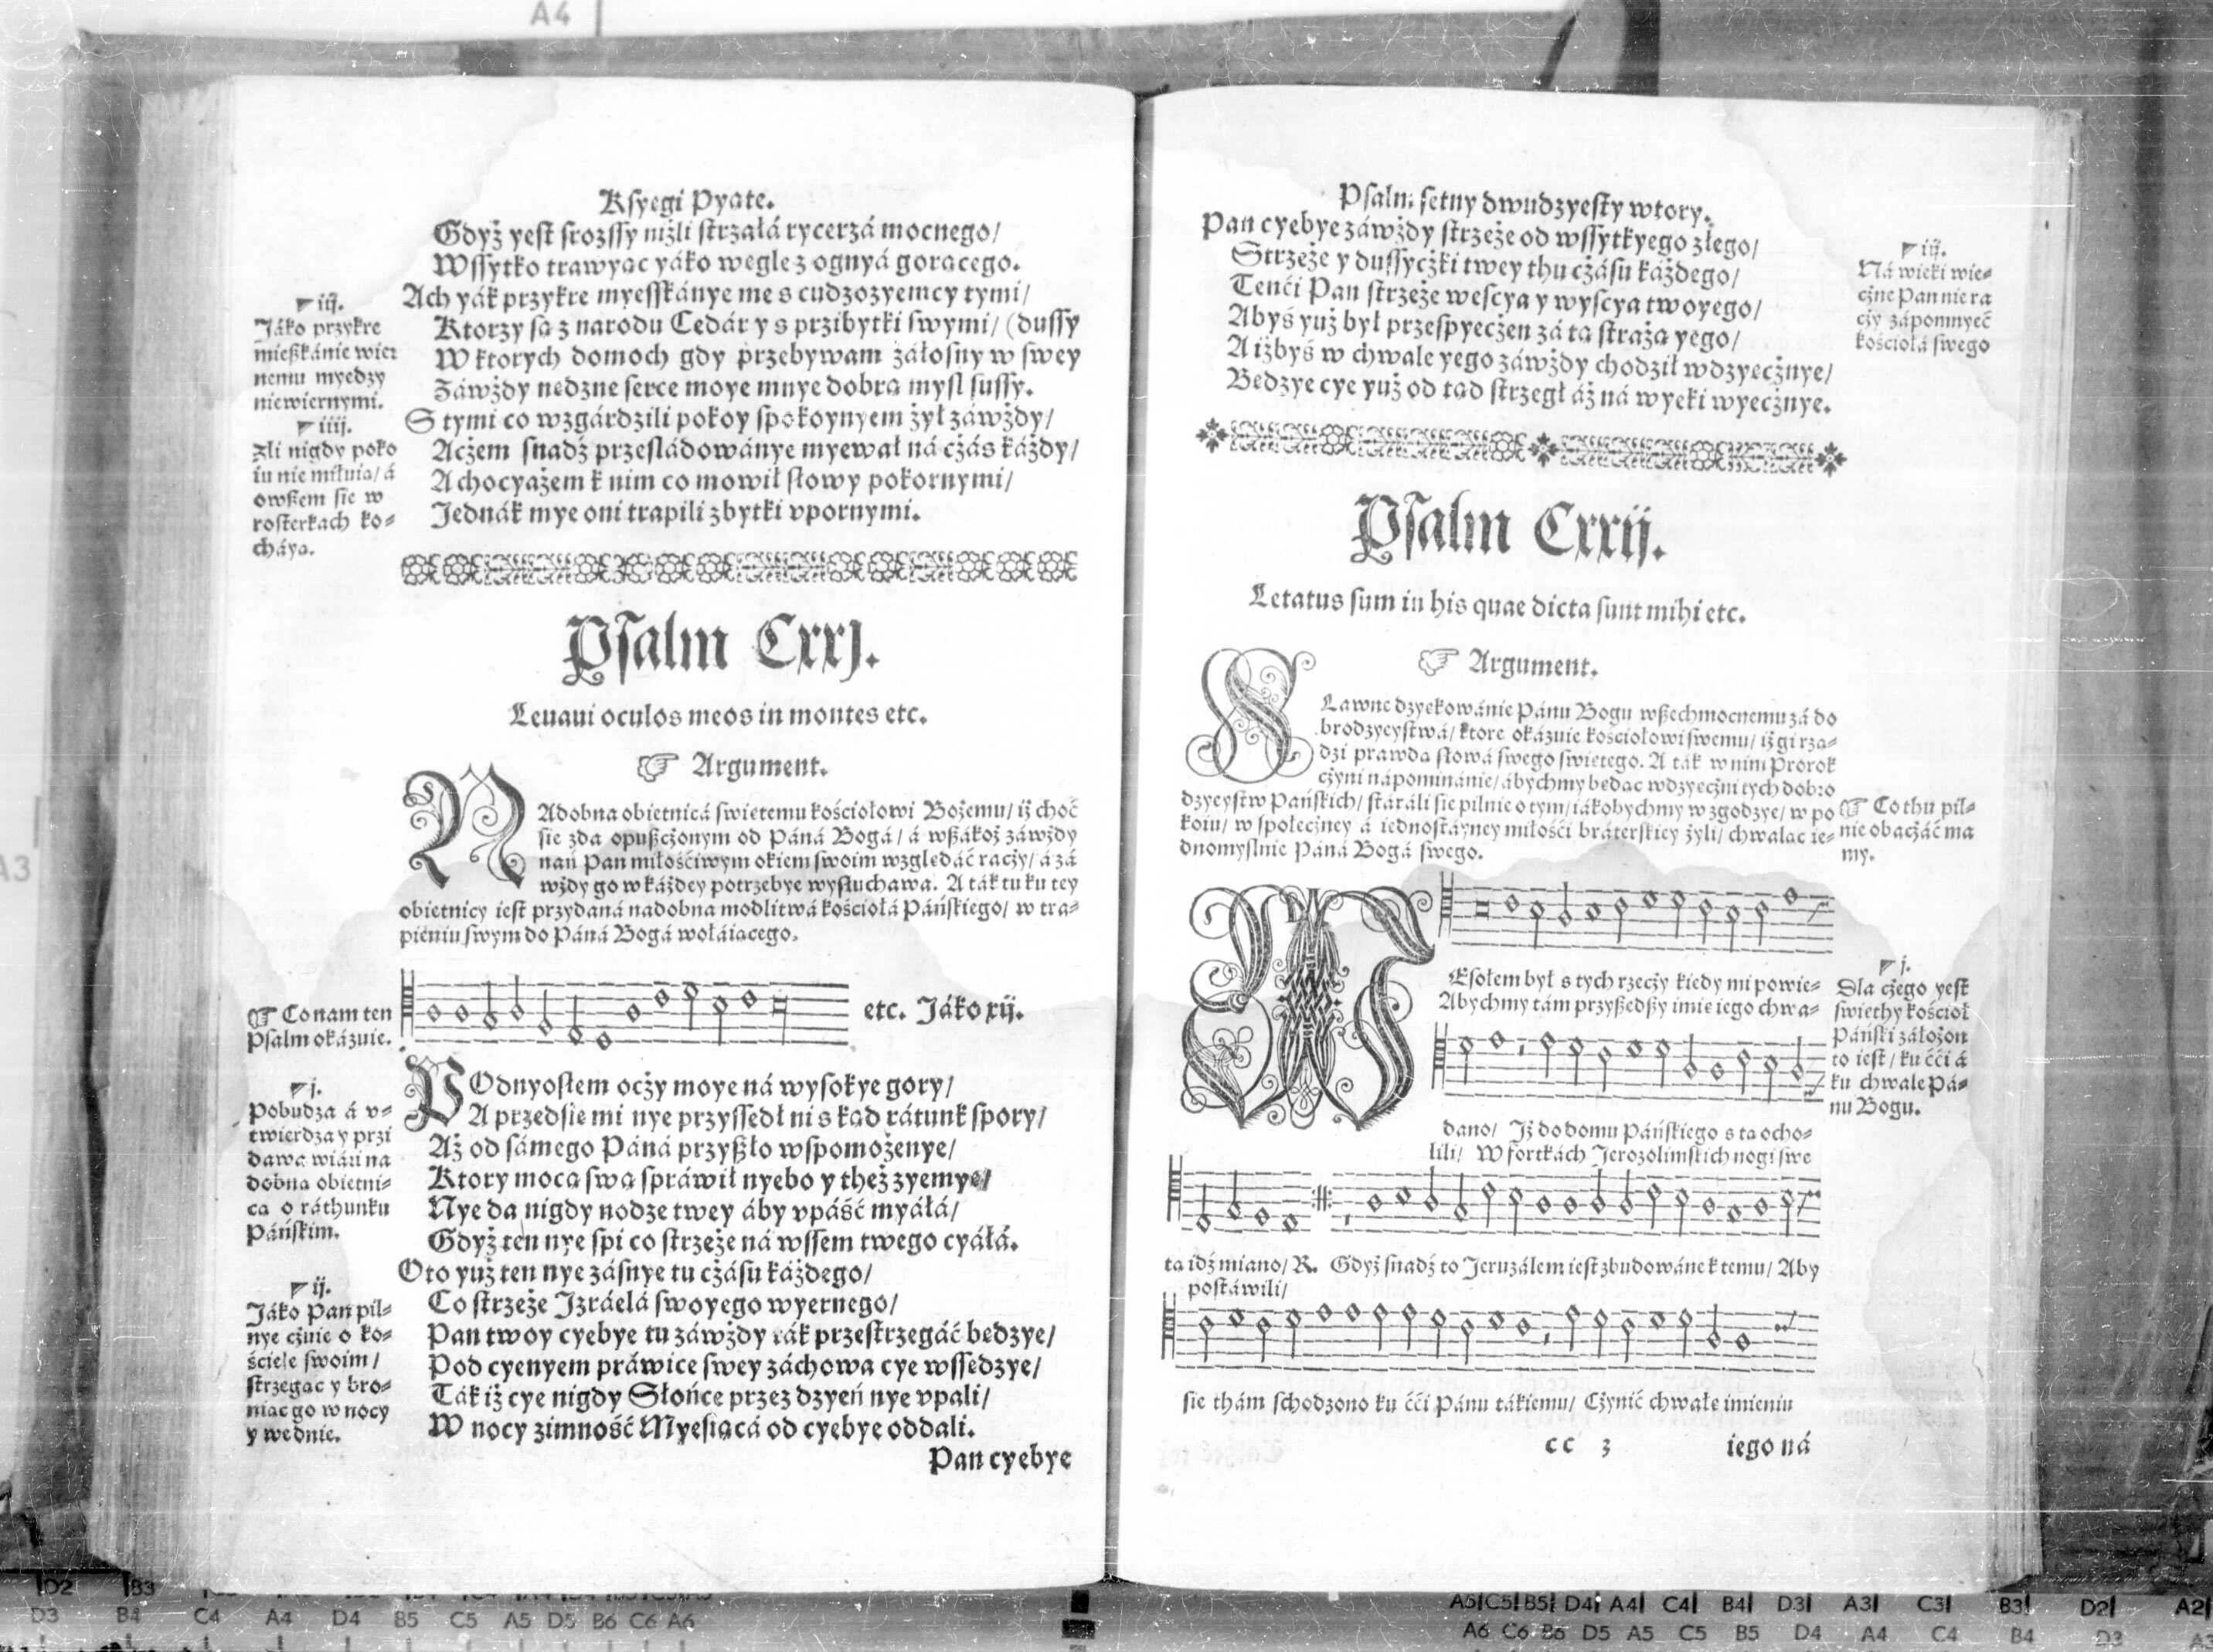 A4
Ksyęgi Pyąte.
Gdyż yest srozssy niżli strzáłá rycerzá mocnego/
Wssytko trawyąc yáko węgle z ognyá gorącego.
Ach yák przykre myesskánye me s cudzozyemcy tymi/
Ktorzy są z narodu Cedár y s przibytki swymi/ (dussy
W ktorych domoch gdy przebywam żáłosny w swey
Záwżdy nędzne serce moye mnye dobrą mysl sussy.
S tymi co wzgárdzili pokoy spokoynyem żył záwżdy/
Acżem snadź przesládowánye myewał ná cżás káżdy/
A chocyażem k nim co mowił słowy pokornymi/
Jednák mye oni trapili zbytki vpornymi.
iij.
Jáko przykre
mießkánie wier
nemu myędzy
niewiernymi.
iiij.
Zli nigdy poko
iu nie miłuią/ á
owßem sie w
rosterkach ko=
cháyą.
Psalm Cxxj.
Leuaui oculos meos in montes etc.
Argument.
NAdobna obietnicá swiętemu kościołowi Bożemu/ iż choć
sie zda opußcżonym od Páná Bogá/ á wßákoż záwżdy
nań Pan miłościwym okiem swoim względáć racży/ á zá
wżdy go w káżdey potrzebye wysłuchawa. A ták tu ku tey
obietnicy iest przydaná nadobna modlitwá kościołá Páńskiego/ w tra=
pieniu swym do Páná Bogá wołáiącego.
Co nam ten
Psalm okázuie.
etc. Jáko xij.
POdnyosłem ocży moye ná wysokye gory/
A przedsię mi nye przyssedł ni s kąd rátunk spory/
Aż od sámego Páná przyßło wspomożenye/
Ktory mocą swą spráwił nyebo y theż zyemyę/
Nye da nigdy nodze twey áby vpáść myáłá/
Gdyż ten nye spi co strzeże ná wssem twego cyáłá.
Oto yuż ten nye zásnye tu cżásu káżdego/
Co strzeże Jzráelá swoyego wyernego/
Pan twoy cyebye tu záwżdy ták przestrzegáć będzye/
Pod cyenyem práwice swey záchowa cye wssędzye/
Ták iż cye nigdy Słońce przez dzyeń nye vpali/
W nocy zimność Myesiącá od cyebye oddali.
Pan cyebye
j.
Pobudza á v=
twierdza y przi
dawa wiári na
dobna obietni=
ca o ráthunku
Páńskim.
ij.
Jáko Pan pil=
nye cżuie o ko=
ściele swoim/
strzegąc y bro=
niąc go w nocy
y we dnie.
Psalm setny dwudzyesty wtory.
Pan cyebye záwżdy strzeże od wssytkyego złego/
Strzeże y dussycżki twey thu cżásu káżdego/
Tenci Pan strzeże weścya y wyścya twoyego/
Abyś yuż był przespyecżen zá tą strażą yego/
A iżbyś w chwale yego záwżdy chodził wdzyecżnye/
Będzye cye yuż od tąd strzegł áż ná wyeki wyecżnye.
iij.
Ná wieki wie=
cżne Pan nie ra
cży zápomnyeć
kościołá swego
Psalm Cxxij.
Letatus sum in his quae dicta sunt mihi etc.
Argument.
SLawne dzyękowánie Pánu Bogu wßechmocnemu zá do
brodzyeystwá/ ktore okázuie kościołowi swemu/ iż gi rzą=
dzi prawdą słowá swego swiętego. A ták w nim Prorok
cżyni nápominánie/ ábychmy będąc wdzyęcżni tych dobro
dzyeystw Páńskich/ stáráli sie pilnie o tym/ iákobychmy w zgodzye/ w po
koiu/ w społecżney á iednostáyney miłości bráterskiey żyli/ chwaląc ie=
dnomyslnie Páná Bogá swego.
Co thu pil=
nie obacżáć ma
my.
WEsołem był s tych rzecży kiedy mi powie=
Abychmy tám przyßedßy imię iego chwa=
j.
Dla cżego yest
swięthy kościoł
Páński záłożon
to iest/ ku cci á
ku chwale Pá=
nu Bogu.
dano/ Jż do domu Páńskiego s tą ocho=
lili/ W fortkách Jerozolimskich nogi swe
tą idź miano/ R. Gdyż snadź to Jeruzálem iest zbudowáne k temu/ Aby
postáwili/
sie thám schodzono ku cci Pánu tákiemu/ Cżynić chwałę imieniu
cc 3
iego ná